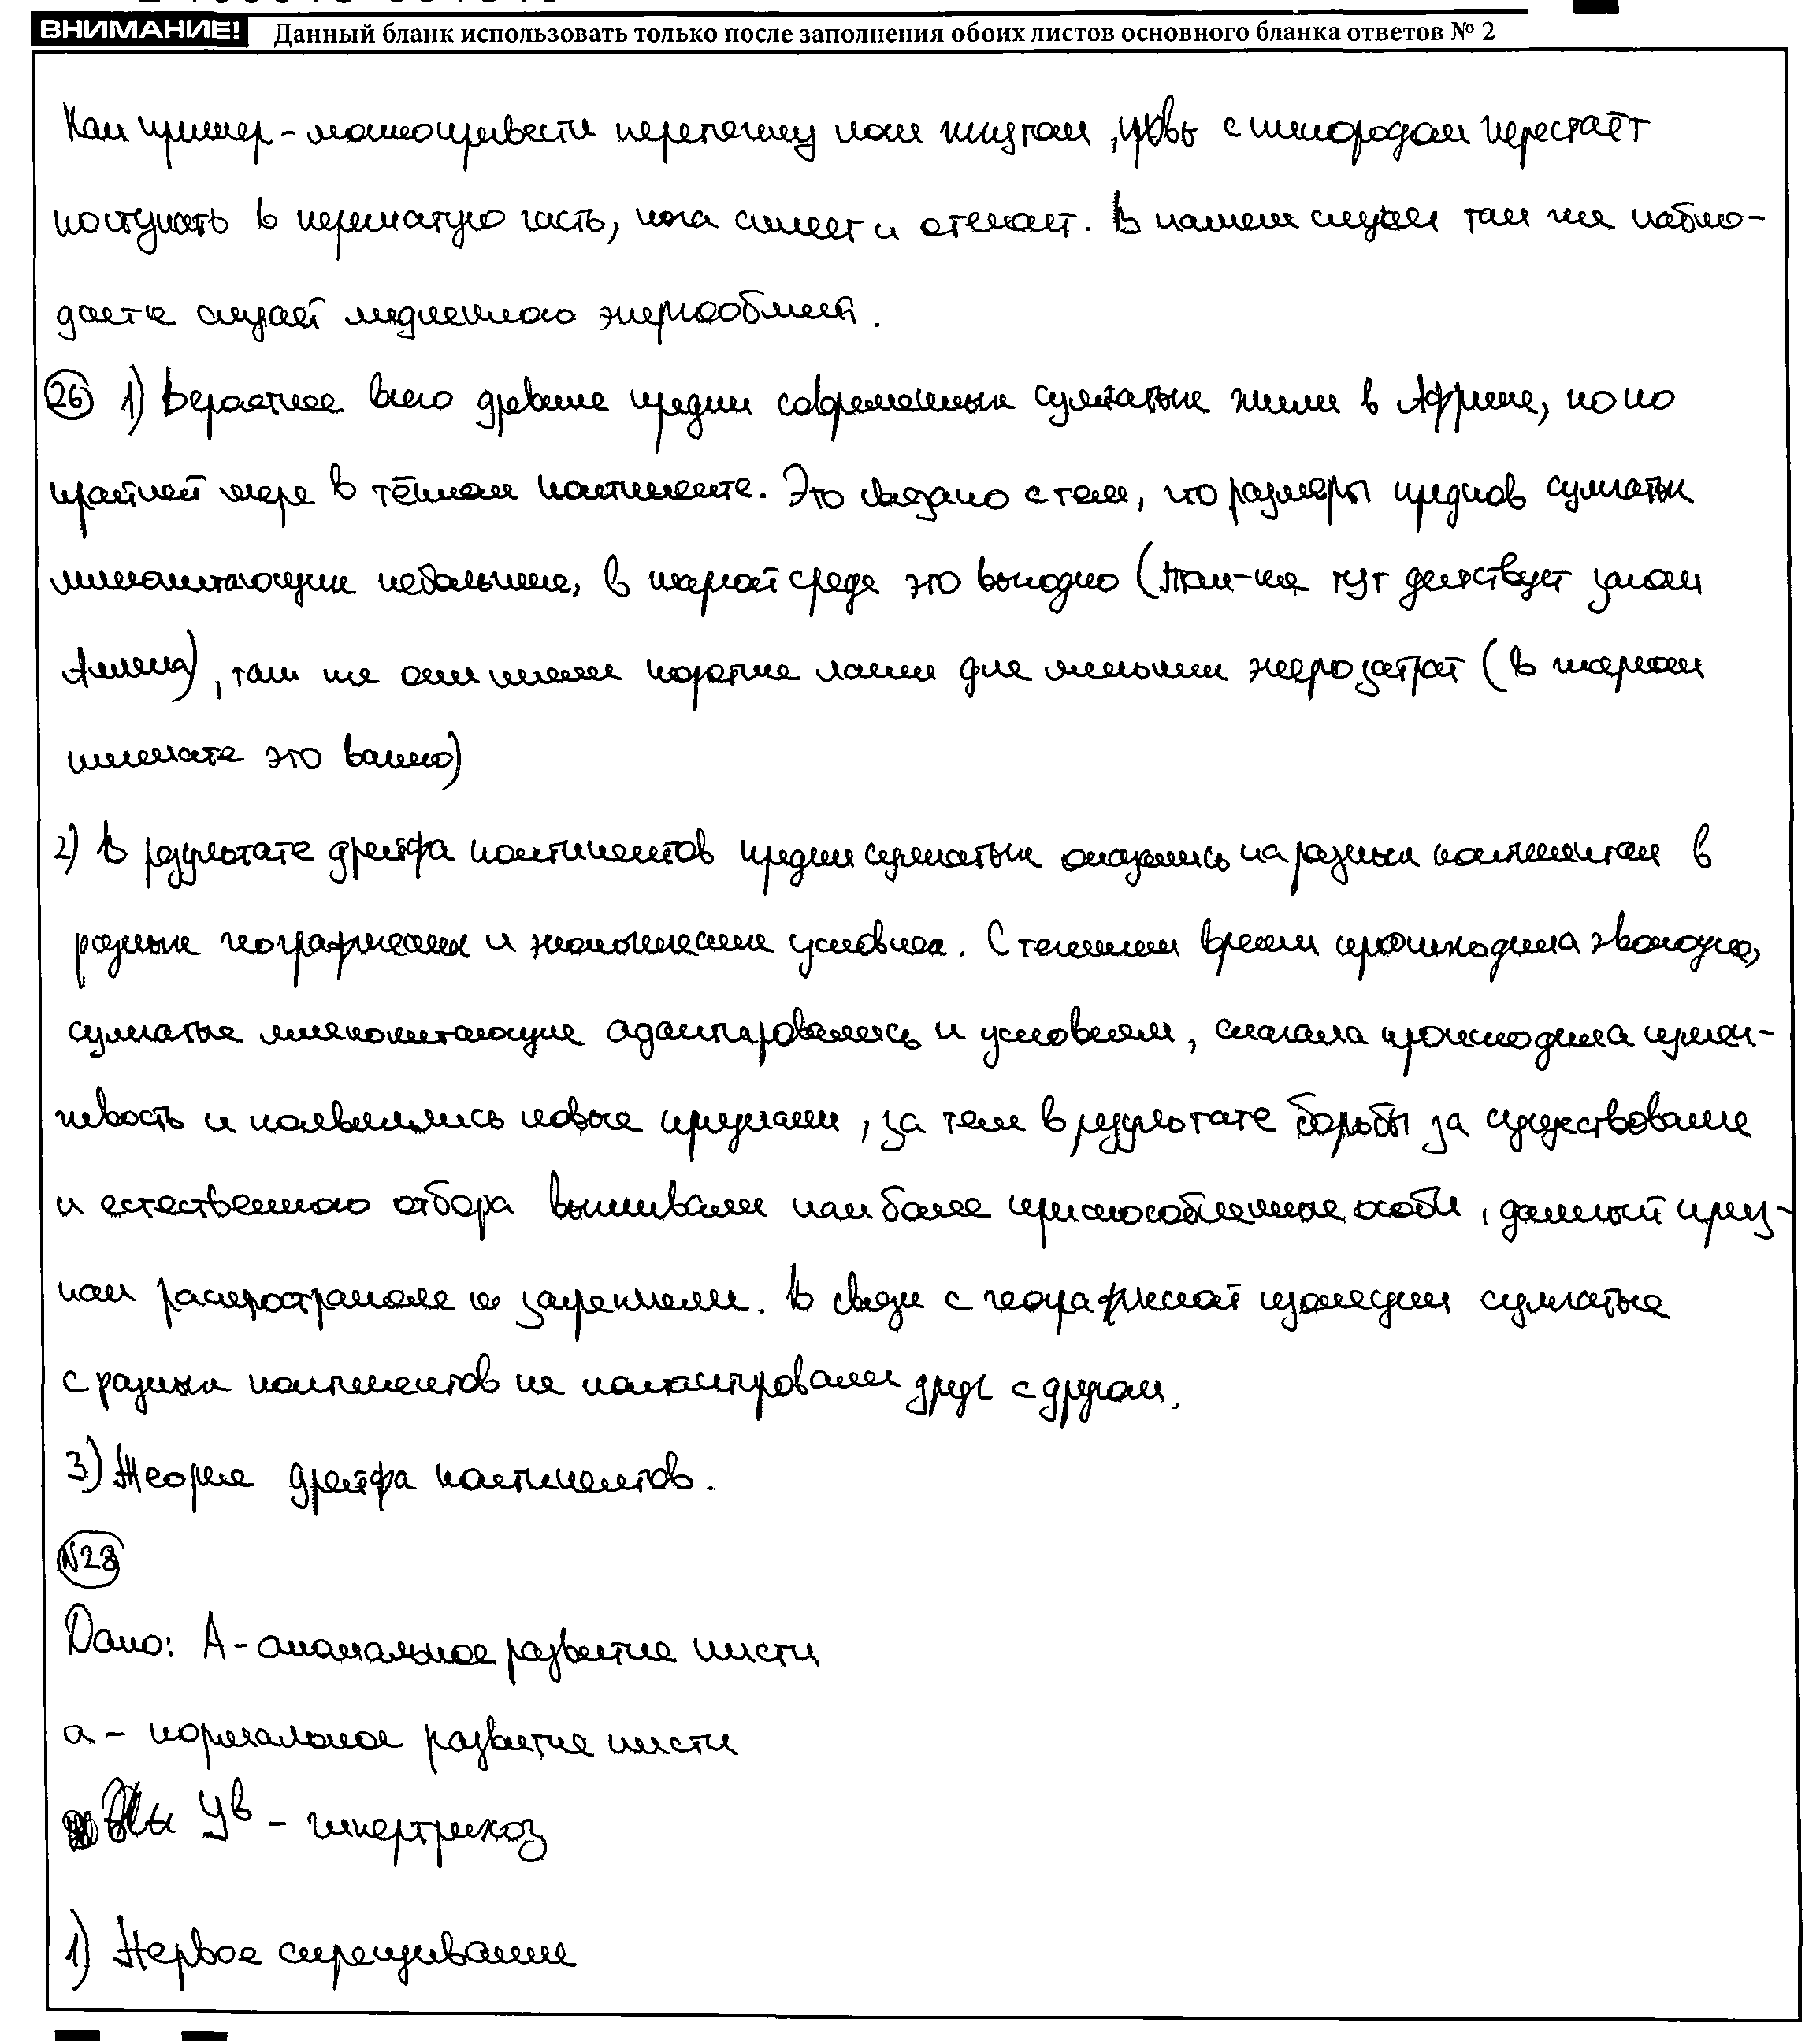 ВНИМАНИЕ! Данный бланк использовать только после заполнения обоих листов основного бланка ответов № 2
Как пример - можно привести перетяжку ноги жгутом, кровь с кислородом перестаёт
поступать в пережатую часть, нога синеет и отекает. В нашем случае так же наблю-
дается случай медленного энергообмена.
26 1) Вероятнее всего древние предки современных сумчатых жили в Африке, но по
крайней мере в тёплом континенте. Это связано с тем, что размеры предков сумчатых
млекопитающих небольшие, в жаркой среде это выгодно (так-же тут действует закон
Аллена), так же они имели короткие лапки для меньших энергозатрат (в жарком
климате это важно)
2) В результате дрейфа континентов предки сумчатых оказались на разных континентах в
разных географических и экологических условиях. С течением времени происходила эволюция,
сумчатые млекопитающие адаптировались к условиям, сначала происходила измен-
чивость и появлялись новые признаки, за тем в результате борьбы за существование
и естественного отбора выживали наиболее приспособленные особи, данный приз-
нак распространялся и закреплялся. В связи с географической изоляцией сумчатые
с разных континентов не контактировали друг с другом.
3) Теория дрейфа континентов.
N28
Дано: А - аномальное развитие кисти
а - нормальное развитие кисти
Yb - гипертрихоз
1) Первое скрещивание